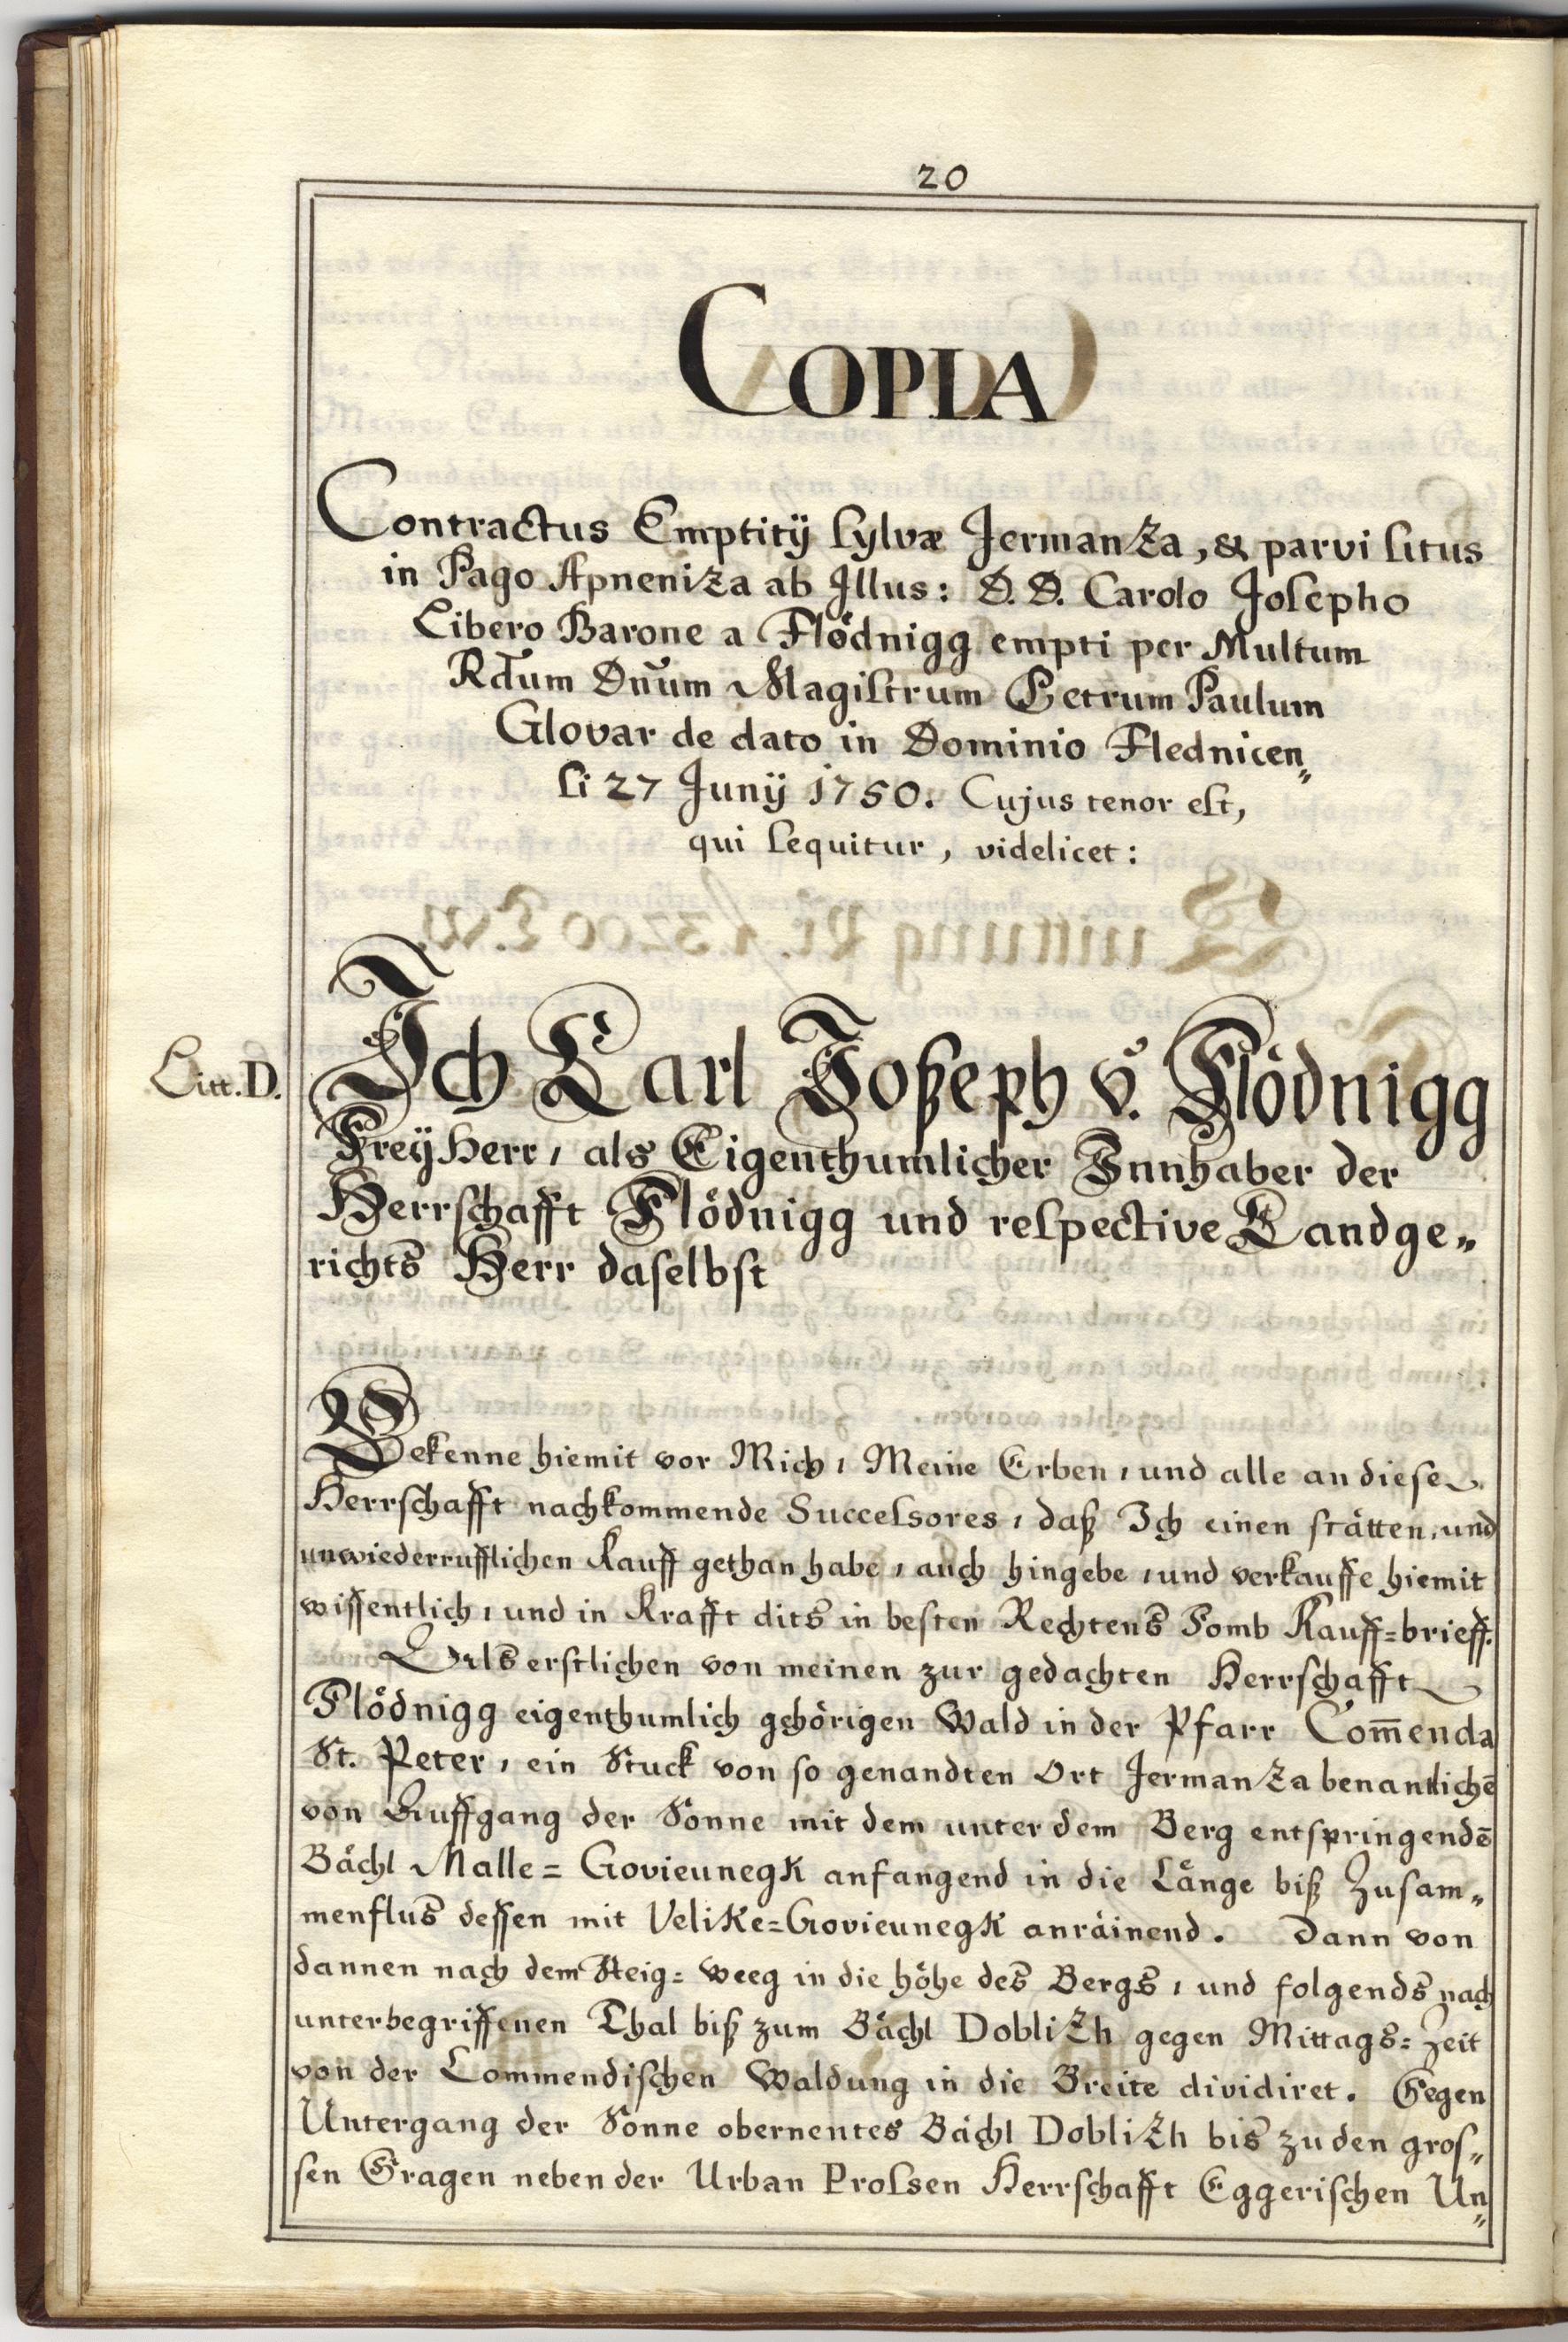 20
COPIA
Contractus Emptitÿ sylvæ Jermanza, & parvi situs
in Pago Apneniza ab Illus: D. D. Carolo Josepho
Libero Barone a Flödnigg empti per Multum
Rdum Dnum Magistrum Petrum Paulum
Glovar de dato in Dominio Flednicen„
si 27 Junÿ 1750. Cujus tenor est,
qui sequitur, videlicet:
Litt. D.
Ich Carl Joßeph v. Flödnigg
Freÿ Herr, als Eigenthumlicher Innhaber der
Herrschafft Flödnigg und respective Landge„
richts Herr daselbst
Bekenne hiemit vor Mich, Meine Erben, und alle an diese
Herrschafft nachkommende Successores, daß Ich einen stätten, und
unwiederrufflichen Kauff gethan habe, auch hingebe, und verkauffe hiemit
wissentlich, und in Krafft dits in besten Rechtens Fomb Kauff=brieff.
Als erstlichen von meinen zur gedachten Herrschafft
Flödnigg eigenthumlich gehörigen Wald in der Pfarr Com̅enda
St. Peter, ein Stuck von so genandten Ort Jermanza benantlichē
von Auffgang der Sonne mit dem unter dem Berg entspringendē
Bächl Malle=Govieunegk anfangend in die Länge biß Zusam„
menflus dessen mit Velike=Govieunegk anräinend. Dann von
dannen nach dem Steig=weeg in die höhe des Bergs, und folgends nach
unterbegriffenen Thal biß zum Bächl Doblizh gegen Mittags=Zeit
von der Commendischen Waldung in die Breite dividiret. Gegen
Untergang der Sonne obernentes Bächl Doblizh bis zu den gros„
sen Gragen neben der Urban Prossen Herrschafft Eggerischen Un„